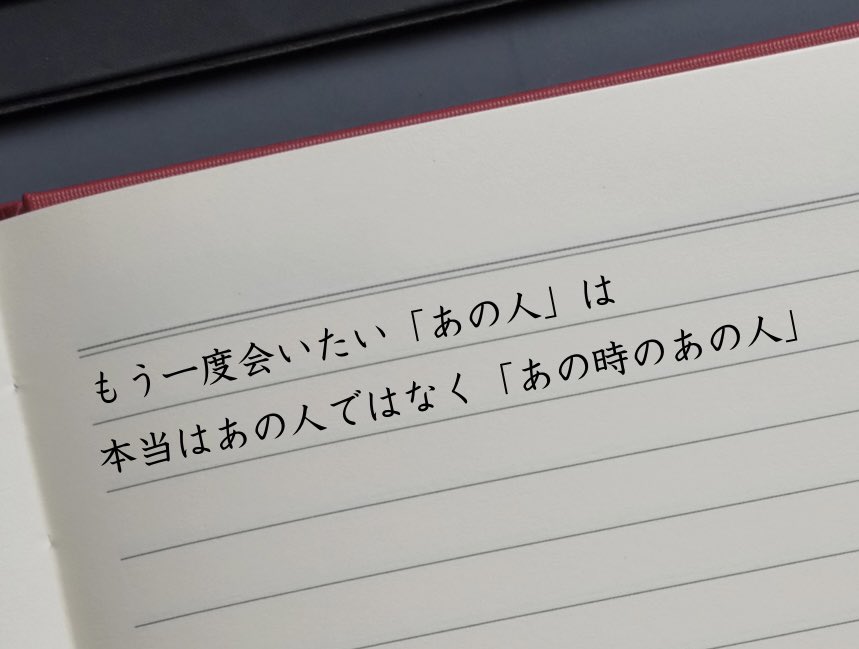 もう一度会いたい「あの人」は
本当はあの人ではなく「あの時のあの人」